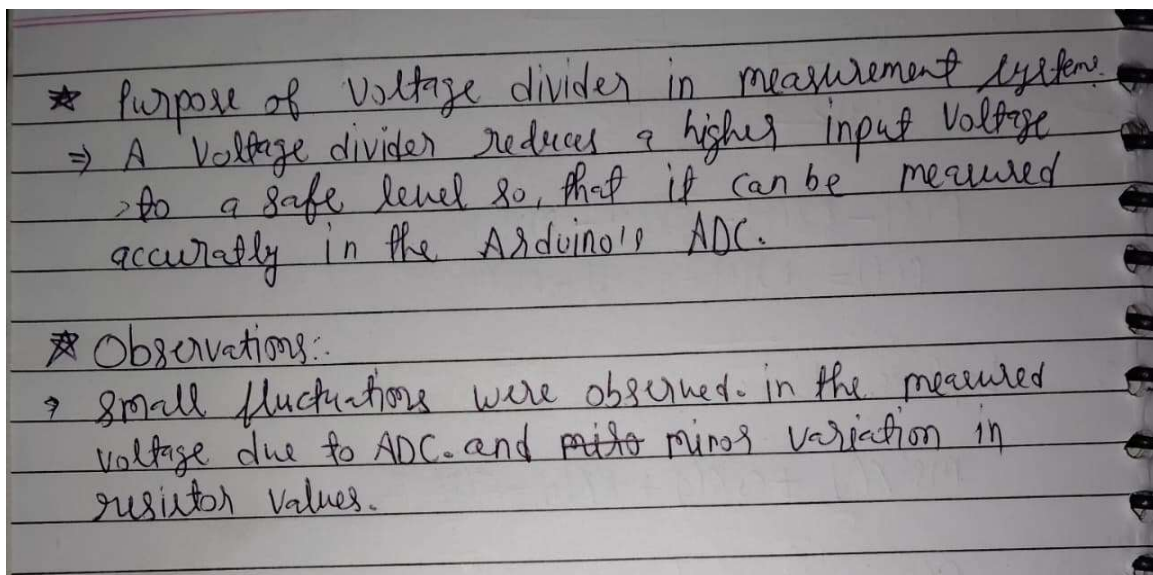 ☆ Purpose of Voltage divider in measurement system.
⇒ A Voltage divider reduces a higher input Voltage
to a safe level so, that it can be measured
accuratly in the Arduino's ADC.
☆ Observations:.
→ Small fluctuations were observed. in the measured
voltage due to ADC. and minor variation in
resistor values.